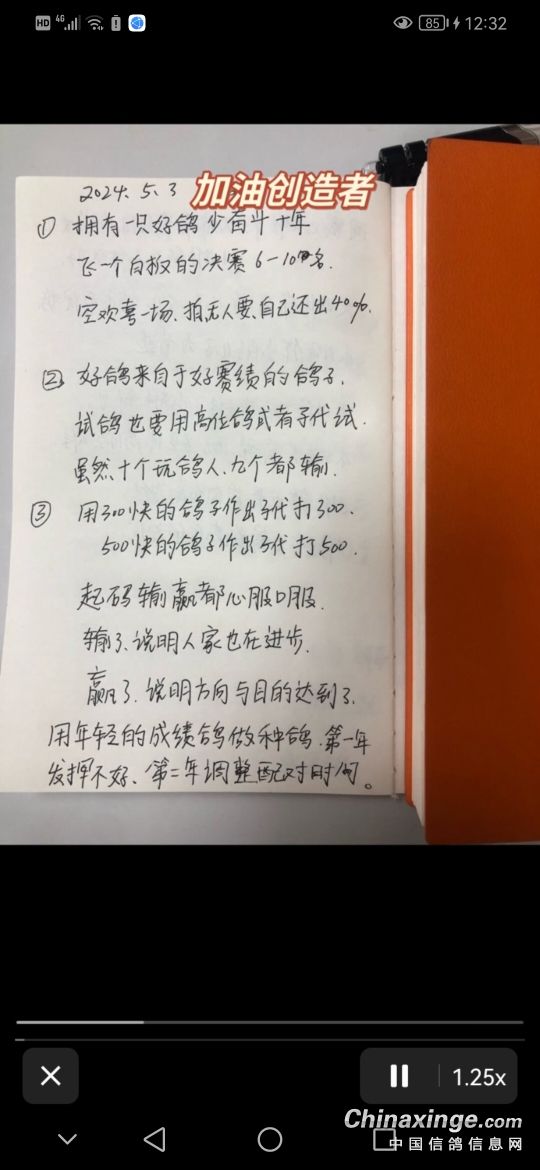 HD 4G 85 12:32
2024. 5. 3 加油创造者
① 拥有一只好鸽少奋斗十年
飞一个白板的决赛6-10名.
空欢喜一场、拍无人要、自己还出40%.
② 好鸽来自于好赛绩的鸽子.
试鸽也要用高位鸽或者子代试.
虽然十个玩鸽人、九个都输.
③ 用300快的鸽子作出子代打300.
500快的鸽子作出子代打500.
起码输赢都心服口服.
输了.说明人家也在进步.
赢了.说明方向与目的达到了.
用年轻的成绩鸽做种鸽.第一年
发挥不好、第二年调整配对时间。
1.25x
Chinaxinge.com
中国信鸽信息网